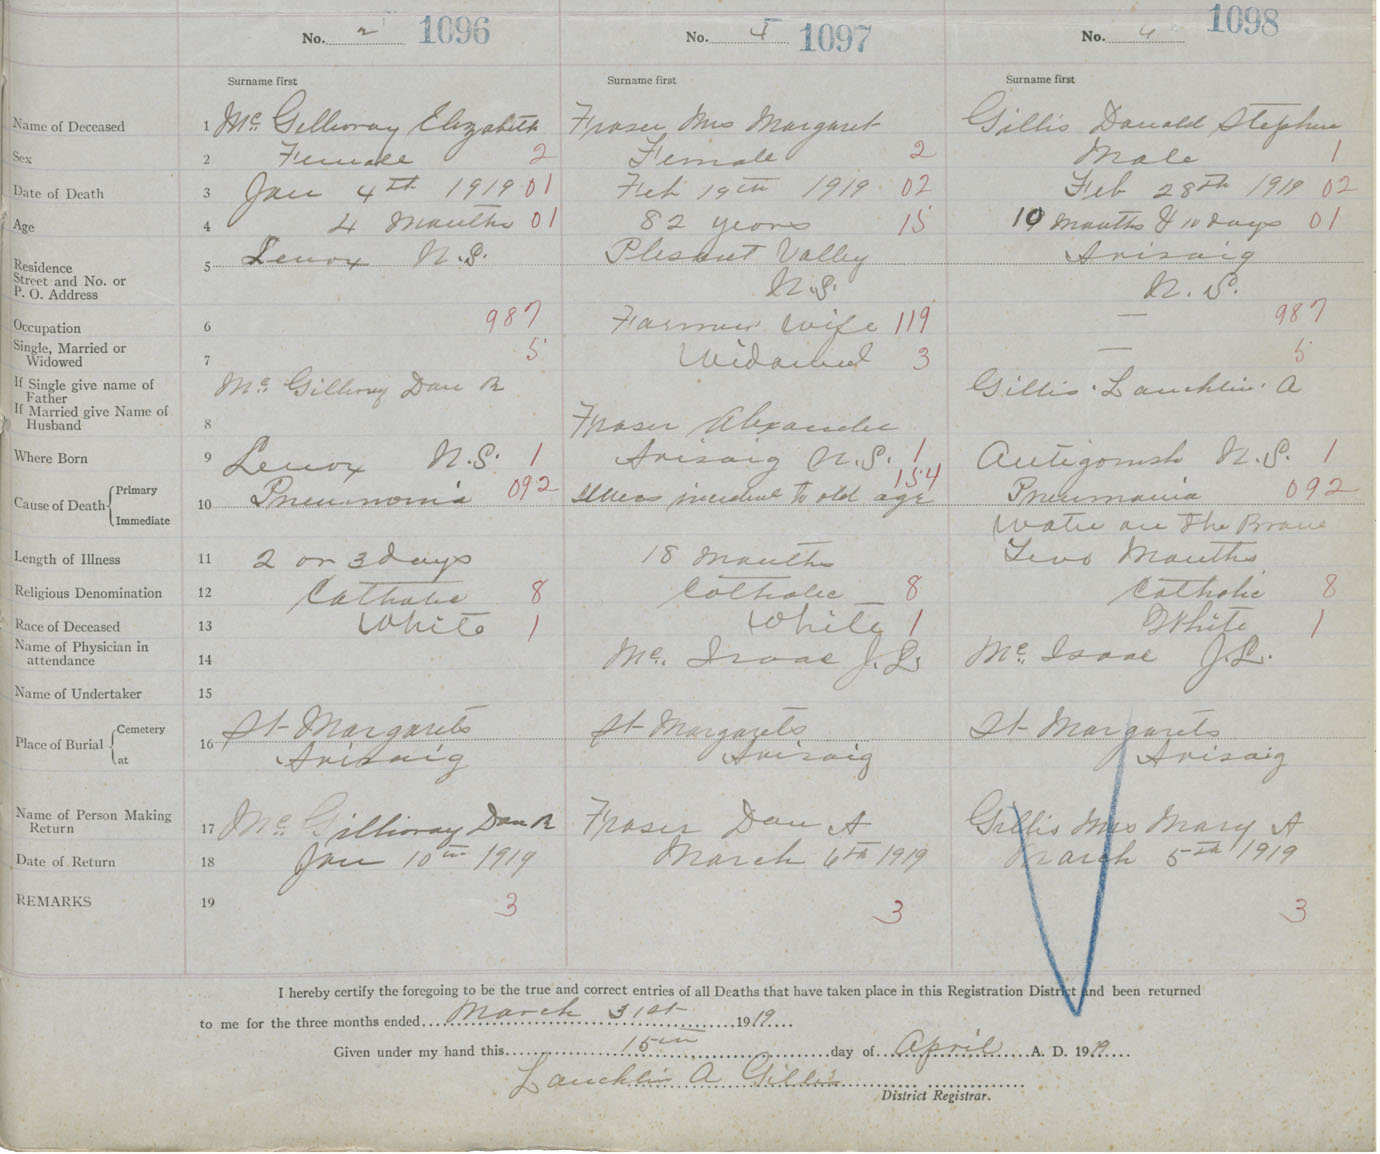 No. 2 1096 No. 1097 No. 1098
Surname first Surname first Surname first
Name of Deceased 1 Mc Gillivray Elizabeth Fraser Mrs Margaret Gillis Donald Stephen
Sex 2 Female 2 Female 2 Male 1
Date of Death 3 Jan 4th 1919 01 Feb 19th 1919 02 Feb 28th 1919 02
Age 4 4 Months 01 82 years 15 10 months & 10 days 01
Residence Street and No. or P. O. Address 5 Lenox N.S. Plesant Valley N.S. Arisaig N.S.
Occupation 6 987 Farmer Wife 119 — 987
Single, Married or Widowed 7 5 Widowed 3 — 5
If Single give name of Father Mc Gillivray Dan R Gillis Lauchlin A
If Married give Name of Husband 8 Fraser Alexander
Where Born 9 Lenox N.S. 1 Arisaig N.S. 1 Antigonish N.S. 1
Cause of Death Primary 10 Pneumonia 092 Illness incident to old age 154 Pneumonia 092
Immediate Water on the
Length of Illness 11 2 or 3 days 18 months Two Months
Religious Denomination 12 Catholic 8 Catholic 8 Catholic 8
Race of Deceased 13 White 1 White 1 White 1
Name of Physician in attendance 14 Mc Isaac J.L. Mc Isaac J.L.
Name of Undertaker 15
Place of Burial Cemetery at 16 St Margarets Arisaig St Margarets Arisaig St Margarets Arisaig
Name of Person Making Return 17 Mc Gillivray Dan R Fraser Dan A Gillis Mrs Mary A
Date of Return 18 Jan 10th 1919 March 6th 1919 March 5th 1919
REMARKS 19 3 3 3
I hereby certify the foregoing to be the true and correct entries of all Deaths that have taken place in this Registration District and been returned
to me for the three months ended March 31st 1919
Given under my hand this 15th day of April A. D. 1919
Lauchlin A Gillis
District Registrar.